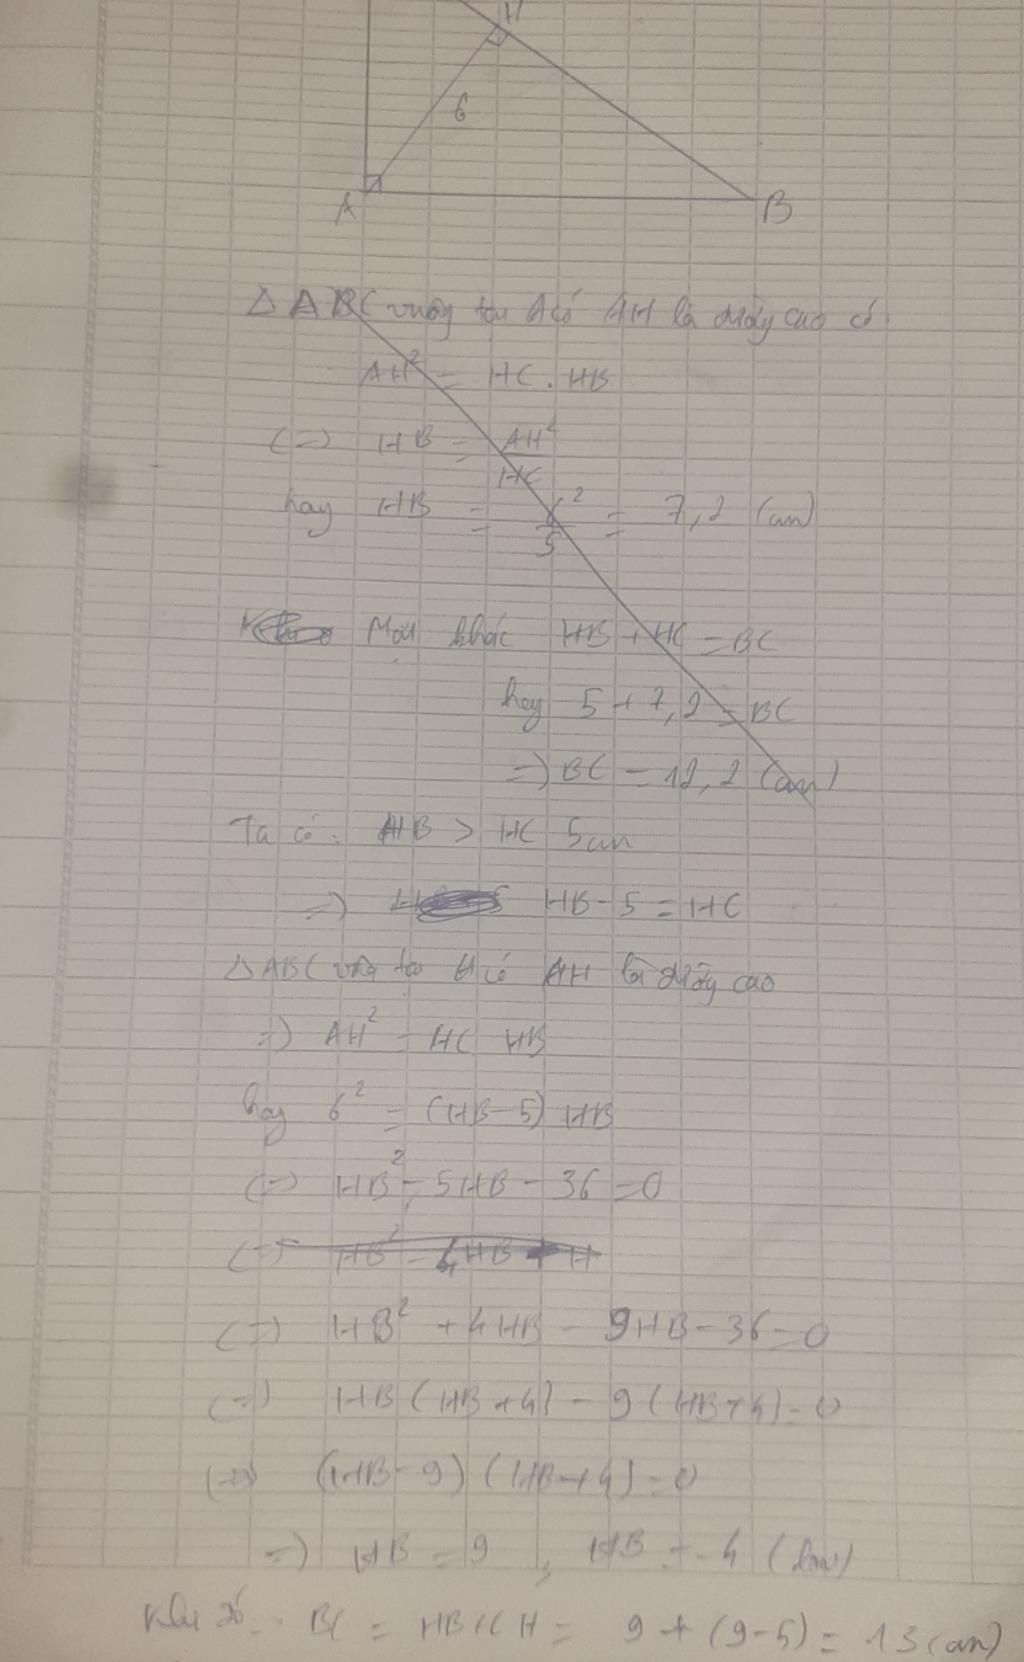 H
6
A
B
Δ ABC vuông tại A có AH là đường cao có
AH² = HC . HB
(=) HB = AH²/HC
hay HB = 6²/5 = 7,2 (cm)
Mặt khác HB + HC = BC
hay 5 + 7,2 = BC
=) BC = 12,2 (cm)
Ta có: HB > HC 5cm
=) HB - 5 = HC
Δ ABC vuông tại A có AH là đường cao
=) AH² = HC HB
hay 6² = (HB - 5) HB
(=) HB² - 5HB - 36 = 0
(=) HB² - 4HB + H
(=) HB² + 4HB - 9HB - 36 = 0
(=) HB (HB + 4) - 9 (HB + 4) = 0
(=) (HB - 9) (HB + 4) = 0
=) HB = 9 , HB = -4 (loại)
Khi đó: BC = HB + CH = 9 + (9-5) = 13 (cm)